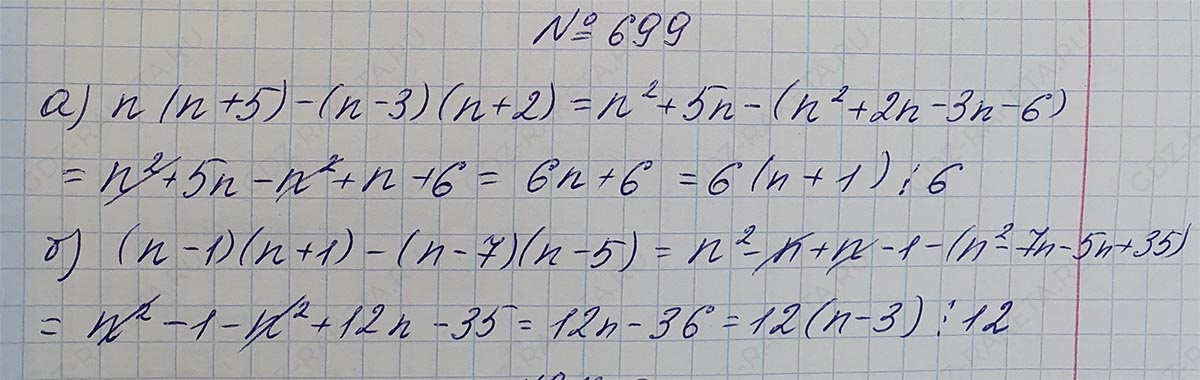 № 699
а) n (n+5) - (n-3) (n+2) = n² + 5n - (n² + 2n - 3n - 6)
= n² + 5n - n² + n + 6 = 6n + 6 = 6 (n + 1) ⋮ 6
б) (n - 1)(n+1) - (n - 7)(n - 5) = n² - n + n - 1 - (n² - 7n - 5n + 35)
= n² - 1 - n² + 12n - 35 = 12n - 36 = 12 (n - 3) ⋮ 12